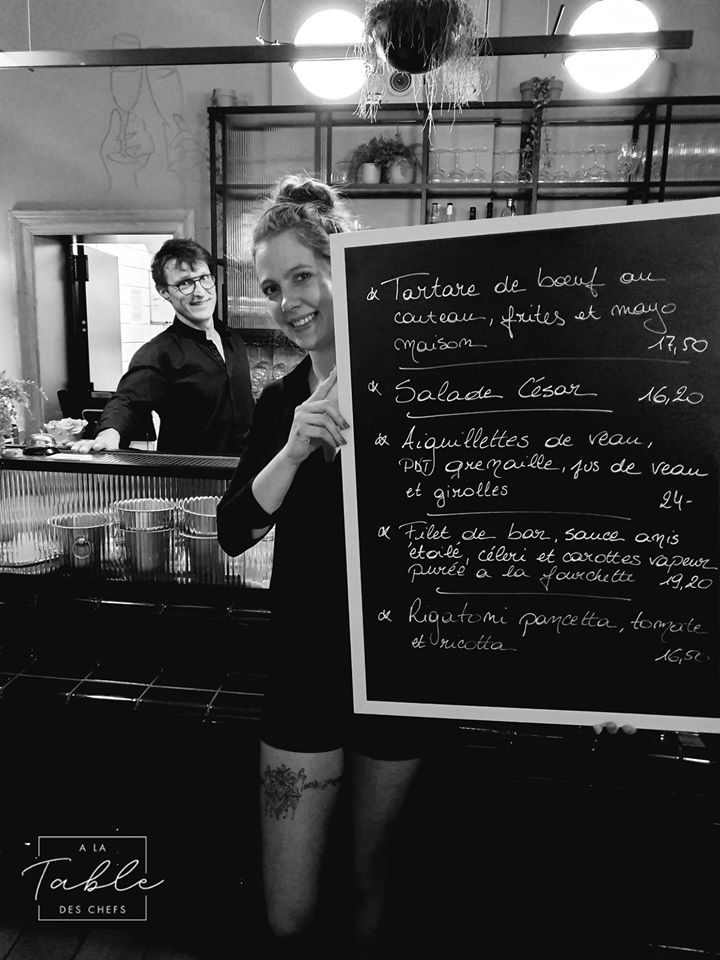 Tartare de bœuf au
couteau, frites et mayo
maison 17,50
Salade César 16,20
Aiguillettes de veau,
PDT grenaille, jus de veau
et girolles 24-
Filet de bar, sauce anis
étoilé, céleri et carottes vapeur
purée a la fourchette 19,20
Rigatoni pancetta, tomate
et ricotta 16,50
A LA
Table
DES CHEFS